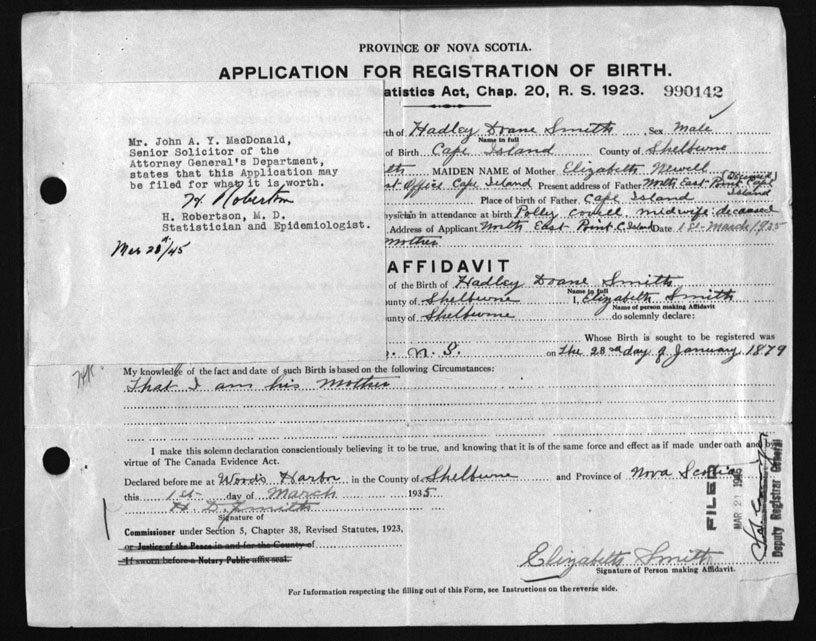 PROVINCE OF NOVA SCOTIA.
APPLICATION FOR REGISTRATION OF BIRTH.
atistics Act, Chap. 20, R. S. 1923. 990142
Mr. John A. Y. MacDonald,
Senior Solicitor of the
Attorney General's Department,
states that this Application may
be filed for what it is worth.
H Robertson
H. Robertson, M. D.
Statistician and Epidemiologist.
Mar 20/45
th of Hadley Doane Smith, Sex Male
Name in full
of Birth Cape Island County of Shelburne
th MAIDEN NAME of Mother Elizabeth Newell
(Deceased)
st Office Cape Island Present address of Father North East Point Cape Island
Place of birth of Father Cape Island
ysician in attendance at birth Polley midwife deceased
Address of Applicant North East Point C. Island Date 1st March 1935
Mother
AFFIDAVIT
of the Birth of Hadley Doane Smith
Name in full
ounty of Shelburne I, Elizabeth Smith
Name of person making Affidavit
ounty of Shelburne do solemnly declare:
Whose Birth is sought to be registered was
N. S. on the 28nd day of January 1879
My knowledge of the fact and date of such Birth is based on the following Circumstances:
That I am his Mother
I make this solemn declaration conscientiously believing it to be true, and knowing that it is of the same force and effect as if made under oath and by
virtue of The Canada Evidence Act.
Declared before me at Woods Harbor in the County of Shelburne and Province of Nova Scotia
this 1st day of March 1935
H D Smith
Signature of
Commissioner under Section 5, Chapter 38, Revised Statutes, 1923,
or Justice of the Peace in and for the County of
If sworn before a Notary Public affix seal.
FILED
MAR 21 1945
Deputy Registrar General
Elizabeth Smith
Signature of Person making Affidavit.
For Information respecting the filling out of this Form, see Instructions on the reverse side.